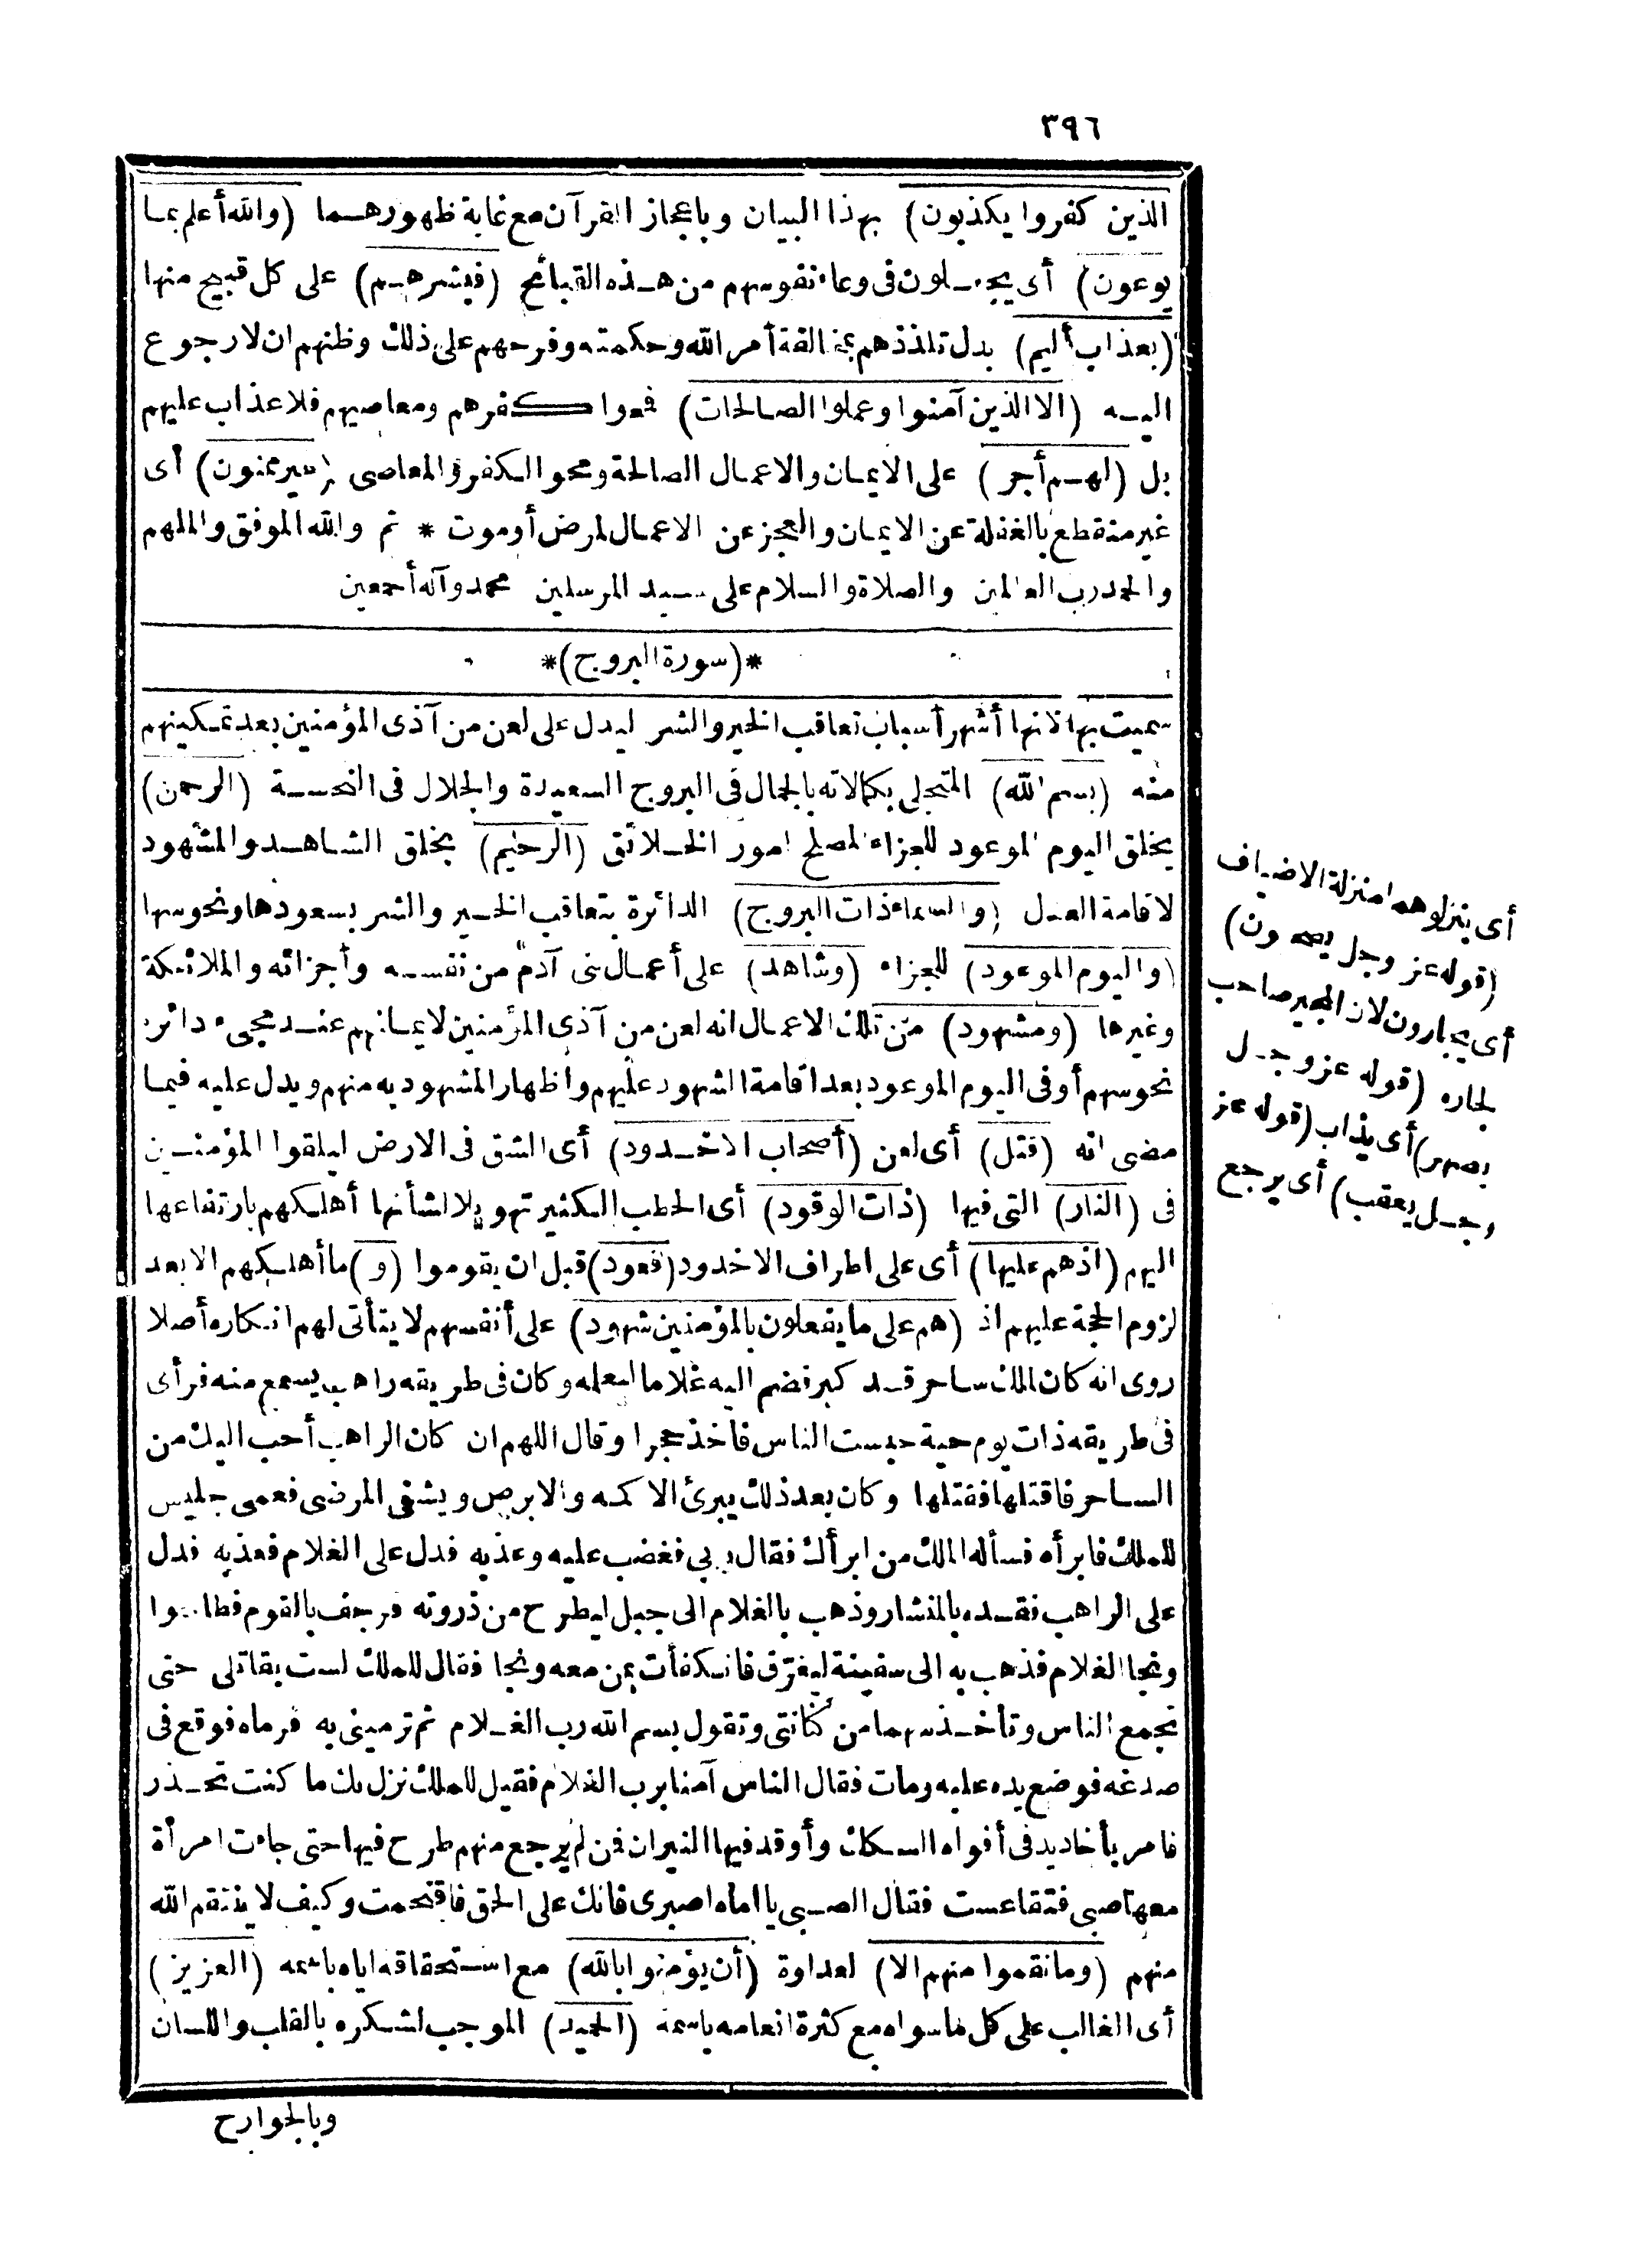 ٣٩٦
الذين كفروا يكذبون) بهذا البيان وباعجاز القرآن مع غاية ظهورهما (والله أعلم بما
يوعون) أى يجعلون فى وعاء نفوسهم من هذه القبائح (فبشرهم) على كل قبيح منها
(بعذاب أليم) بدل تلذذهم بمخالفة أمر الله وحكمته وفرحهم على ذلك وظنهم ان لا رجوع
اليه (الا الذين آمنوا وعملوا الصالحات) فمحوا كفرهم ومعاصيهم فلا عذاب عليهم
بل (لهم أجر) على الايمان والاعمال الصالحة ومحو الكفر والمعاصى (غير ممنون) أى
غير منقطع بالغفلة عن الايمان والعجز عن الاعمال لمرض أو موت * تم والله الموفق والملهم
والحمد رب العالمين والصلاة والسلام على سيد المرسلين محمد وآله أجمعين
*(سورة البروج)*
سميت بها لانها أشهر أسباب تعاقب الخير والشر ليدل على لعن من آذى المؤمنين بعد تمكينهم
منه (بسم الله) المتجلى بكمالاته بالجمال فى البروج السعيدة والجلال فى النحسة (الرحمن)
بخلق اليوم الموعود للجزاء لمصلح امور الخلائق (الرحيم) بخلق الشاهد والمشهود
لاقامة العدل (والسماء ذات البروج) الدائرة بتعاقب الخير والشر بسعودها ونحوسها
(واليوم الموعود) للجزاء (وشاهد) على أعمال بنى آدم من نفسه وأجزائه والملائكة
وغيرها (ومشهود) من تلك الاعمال انه لعن من آذى المؤمنين لايمانهم عند مجىء دائرة
نحوسهم أو فى اليوم الموعود بعد اقامة الشهود عليهم واظهار المشهود به منهم ويدل عليه فيما
مضى انه (قتل) أى لعن (أصحاب الاخدود) أى الشق فى الارض ليلقوا المؤمنين
فى (النار) التى فيها (ذات الوقود) أى الحطب الكثير تهويلا لشأنها أهلكهم بارتفاعها
اليهم (اذ هم عليها) أى على اطراف الاخدود (قعود) قبل ان يقوموا (و) ما أهلكهم الا بعد
لزوم الحجة عليهم اذ (هم على ما يفعلون بالمؤمنين شهود) على أنفسهم لا يتأتى لهم انكاره أصلا
روى انه كان الملك ساحر قد كبر فضم اليه غلاما ليعلمه وكان فى طريقه راهب يسمع منه فرأى
فى طريقه ذات يوم حية حبست الناس فاخذ حجرا وقال اللهم ان كان الراهب أحب اليك من
الساحر فاقتلها فقتلها وكان بعد ذلك يبرئ الاكمه والابرص ويشفى المرضى فعمى جليس
للملك فابرأه فسأله الملك من ابرأك فقال ربى فغضب عليه وعذبه فدل على الغلام فعذبه فدل
على الراهب فقده بالمنشار وذهب بالغلام الى جبل ليطرح من ذروته فرجف بالقوم
ونجا الغلام فذهب به الى سفينة ليغرق فانكفأت بمن معه ونجا فقال للملك لست بقاتلى حتى
تجمع الناس وتأخذ سهما من كنانتى وتقول بسم الله رب الغلام ثم ترمينى به فرماه فوقع فى
صدغه فوضع يده عليه ومات فقال الناس آمنا برب الغلام فقيل للملك نزل بك ما كنت تحذر
فامر بأخاديد فى أفواه السكك وأوقد فيها النيران فمن لم يرجع منهم طرح فيها حتى جاءت امرأة
معها صبى فتقاعست فقال الصبى يا اماه اصبرى فانك على الحق فاقتحمت وكيف لا ينتقم الله
منهم (وما نقموا منهم الا) لعداوة (أن يؤمنوا بالله) مع استحقاقه اياه باسمه (العزيز)
أى الغالب على كل ما سواه مع كثرة انعامه باسمه (الحميد) الموجب لشكره بالقلب واللسان
وبالجوارح
أى ينزلوهما منزلة الاضياف
(قوله عز وجل يصحبون)
أى يجارون لان المجير صاحب
لجاره (قوله عز وجل
يصهر) أى يذاب (قوله عز
وجل يعقب) أى يرجع